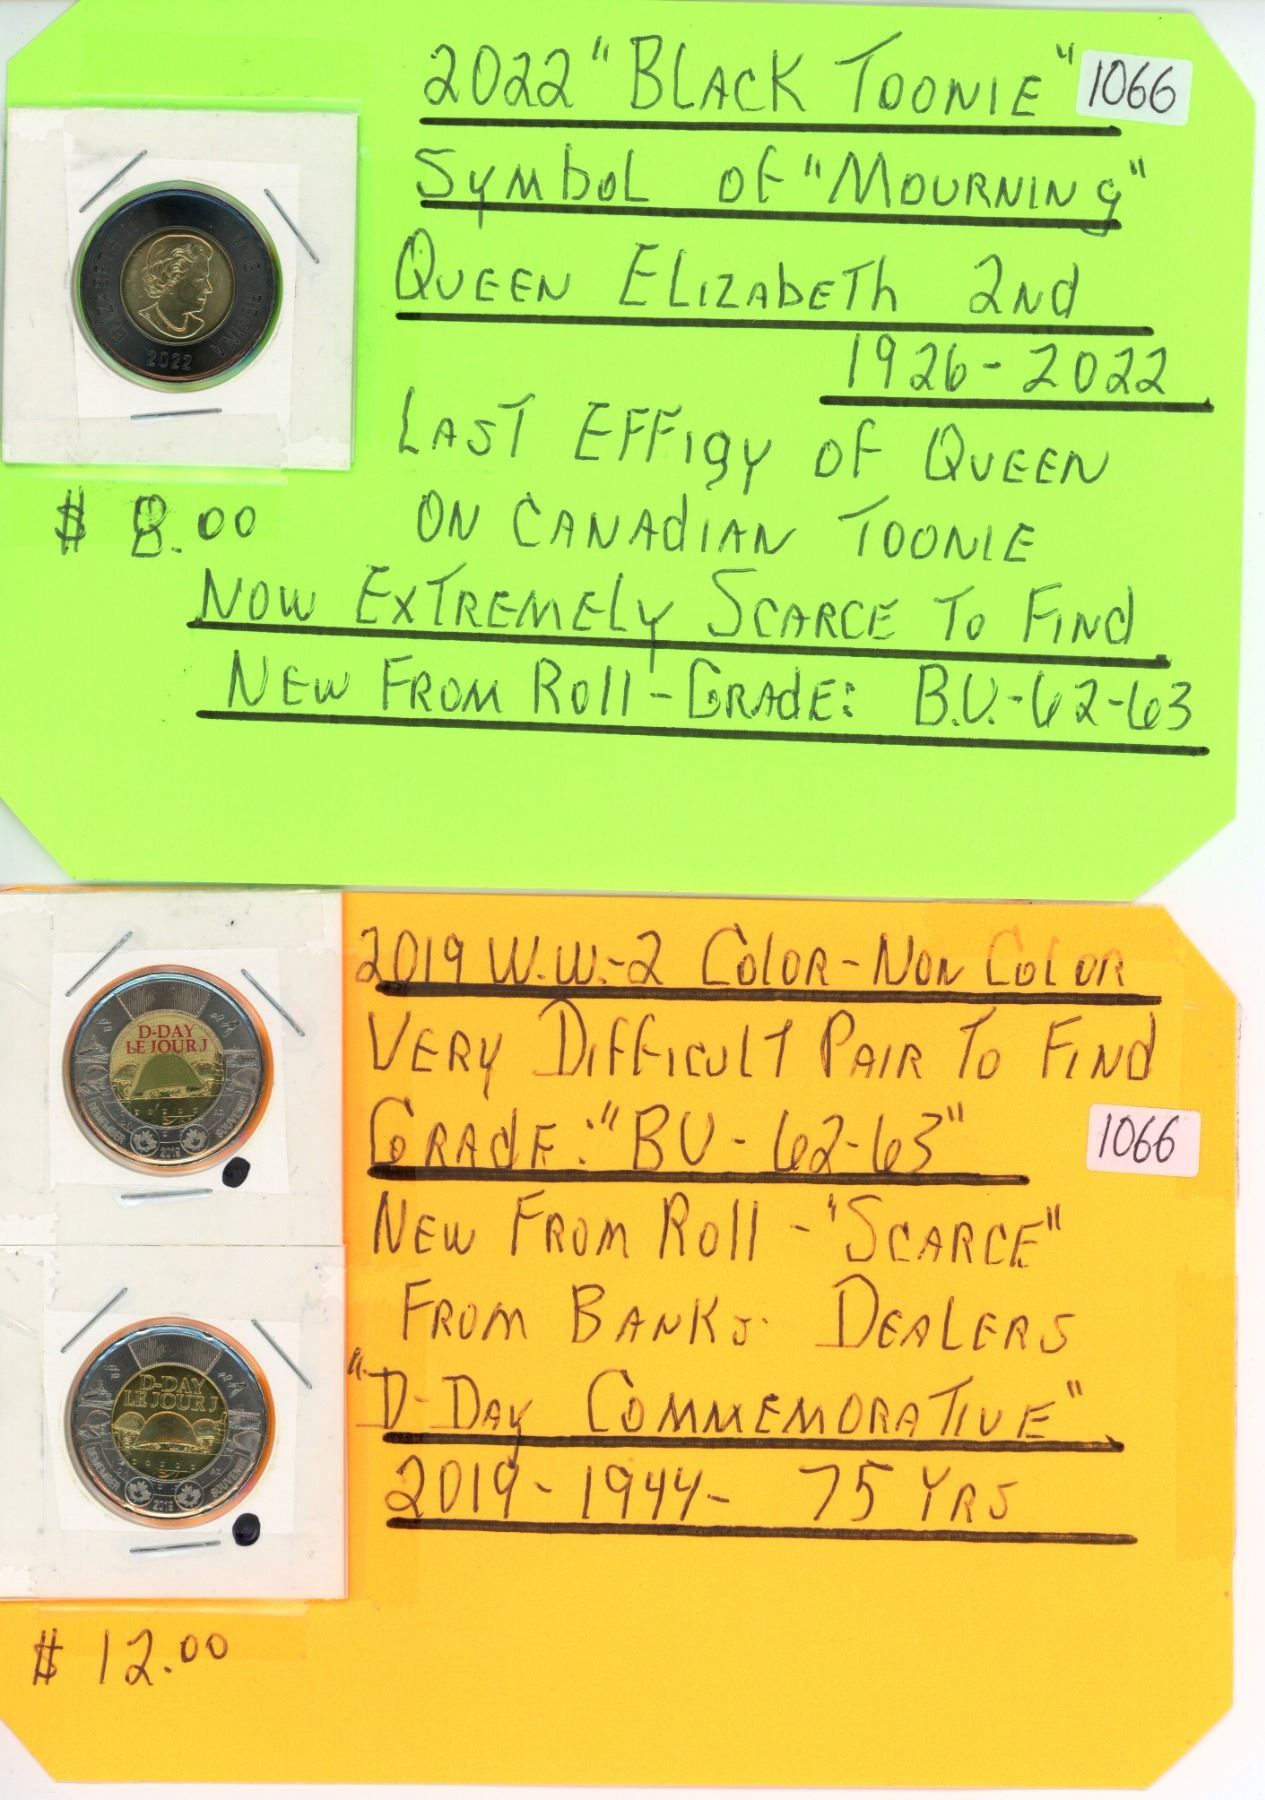 2022 "BLACK TOONIE" 1066
SYMBOL OF "MOURNING"
QUEEN ELIZABETH 2ND
1926-2022
LAST EFFIGY OF QUEEN
ON CANADIAN TOONIE
$ 8.00
NOW EXTREMELY SCARCE TO FIND
NEW FROM ROLL - GRADE: B.U.-62-63
ELIZABETH II D.G. REGINA
2022
2019 W.W.-2 COLOR-NON COLOR
VERY DIFFICULT PAIR TO FIND
GRADE: "BU-62-63"
1066
NEW FROM ROLL - "SCARCE"
FROM BANKS. DEALERS
"D-DAY COMMEMORATIVE"
2019-1944- 75 YRS
D-DAY
LE JOUR J
REMEMBER SOUVENIR
2019
D-DAY
LE JOUR J
REMEMBER SOUVENIR
2019
$ 12.00